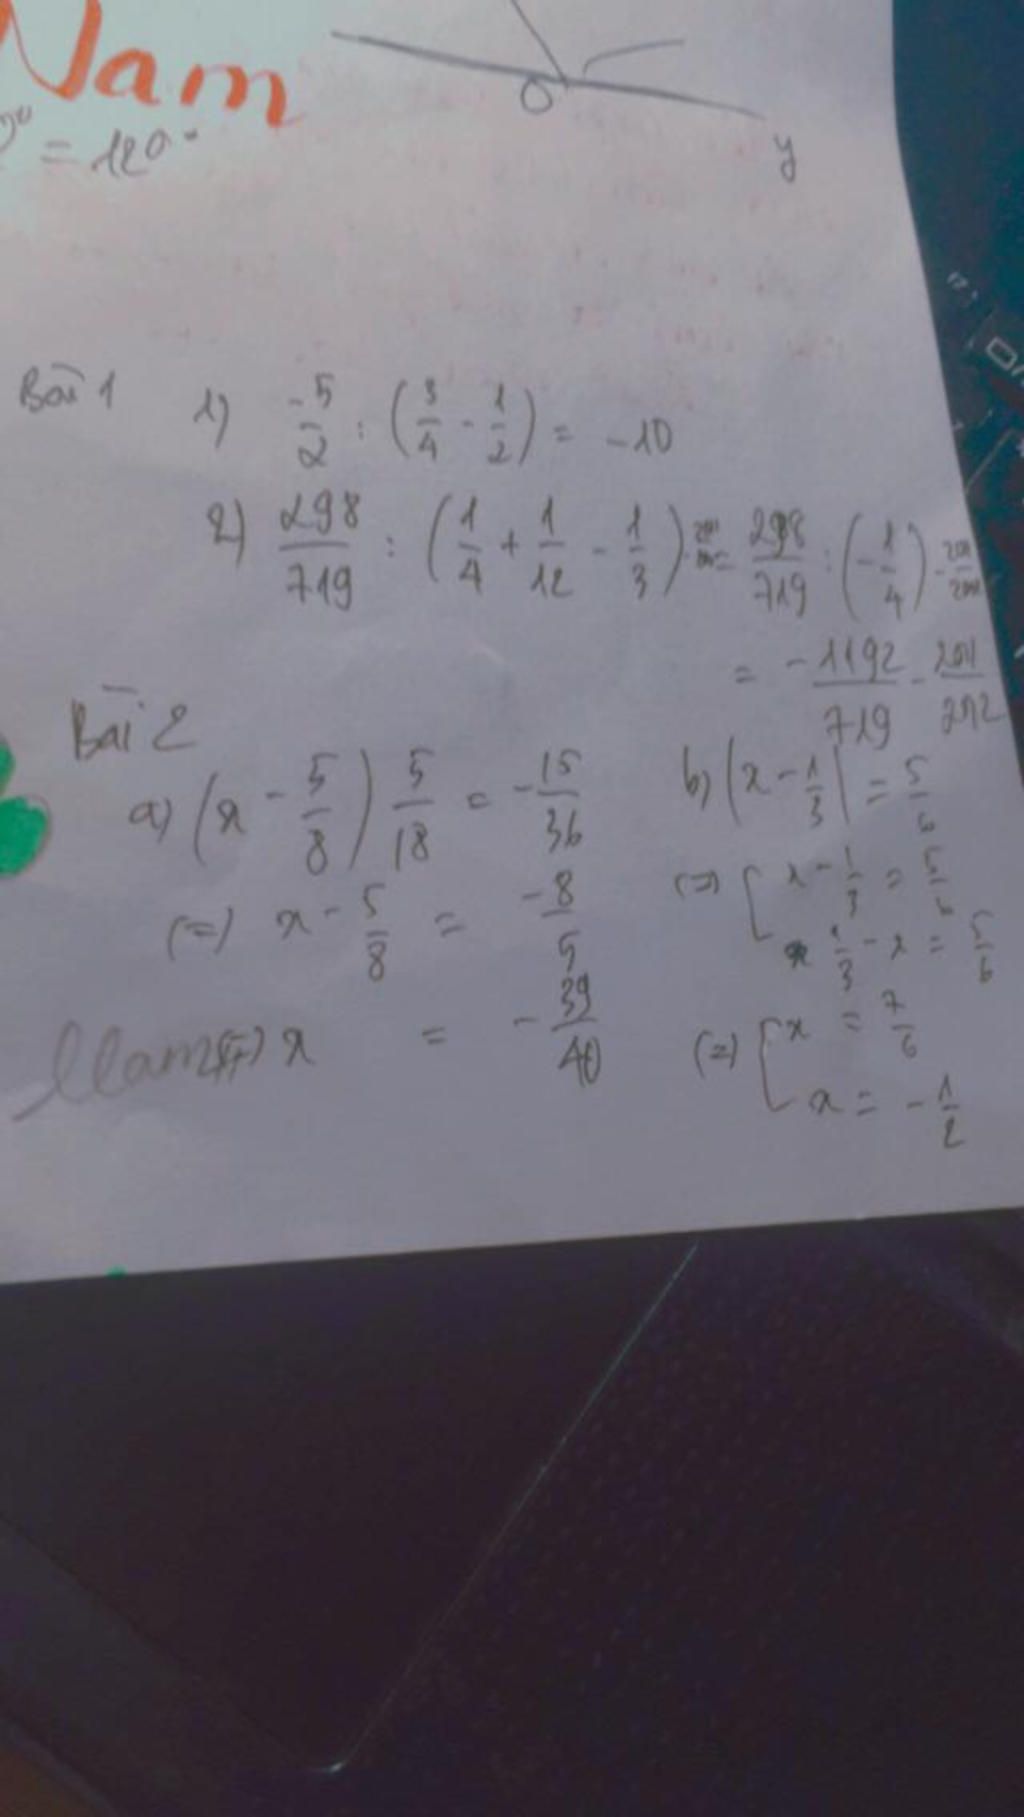 Nam
= 120°
O
y
Bài 1 1) -5/2 : (3/4 - 1/2) = -10
2) 298/719 : (1/4 + 1/12 - 1/3) = 298/719 : (-1/4)
= -1192/719 - 2011/2012
Bài 2
a) (x - 5/8) 5/18 = -15/36
(=) x - 5/8 = -8/5
(=) x = -39/40
b) |x - 1/3| = 5/6
(=) [ x - 1/3 = 5/6
1/3 - x = 5/6
(=) [ x = 7/6
x = -1/2